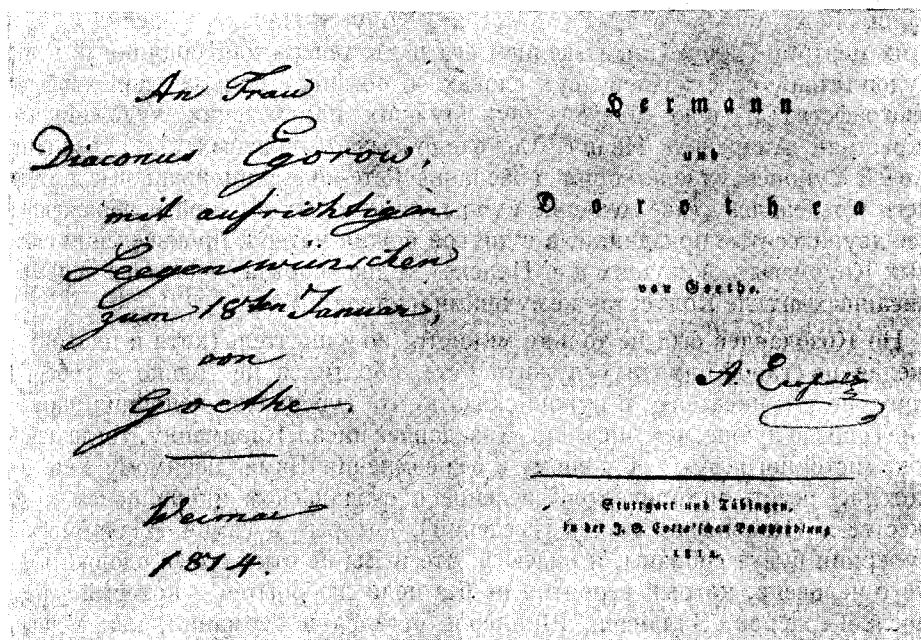 An Frau
Diaconus Egorow,
mit aufrichtigen
Seegenswünschen
zum 18ten Januar,
von
Goethe.
Weimar
1814.
Hermann
und
Dorothea
von Goethe.
A.
Stuttgart und Tübingen,
in der J. G. Cotta'schen Buchhandlung